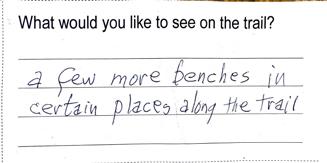 What would you like to see on the trail?
a few more benches in
certain places along the trail